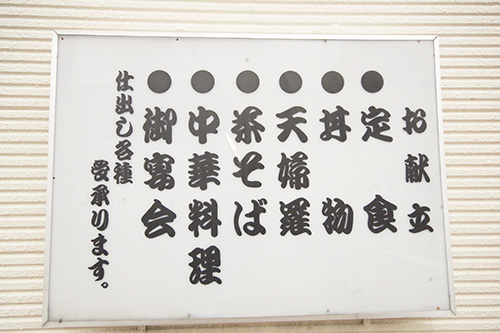 お献立
●定食
●丼物
●天婦羅
●茶そば
●中華料理
●御宴会
仕出し各種
受承ります。